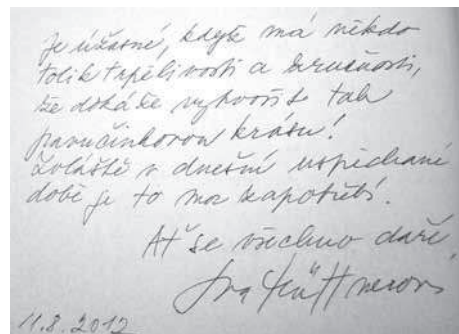 Je úžasné, když má někdo
tolik trpělivosti a zručnosti,
že dokáže vytvořit tak
pavučinkovou krásu!
Zvláště v dnešní uspěchané
době je to moc zapotřebí.
Ať se všechno daří,
Iva Hüttnerová
11.8.2012